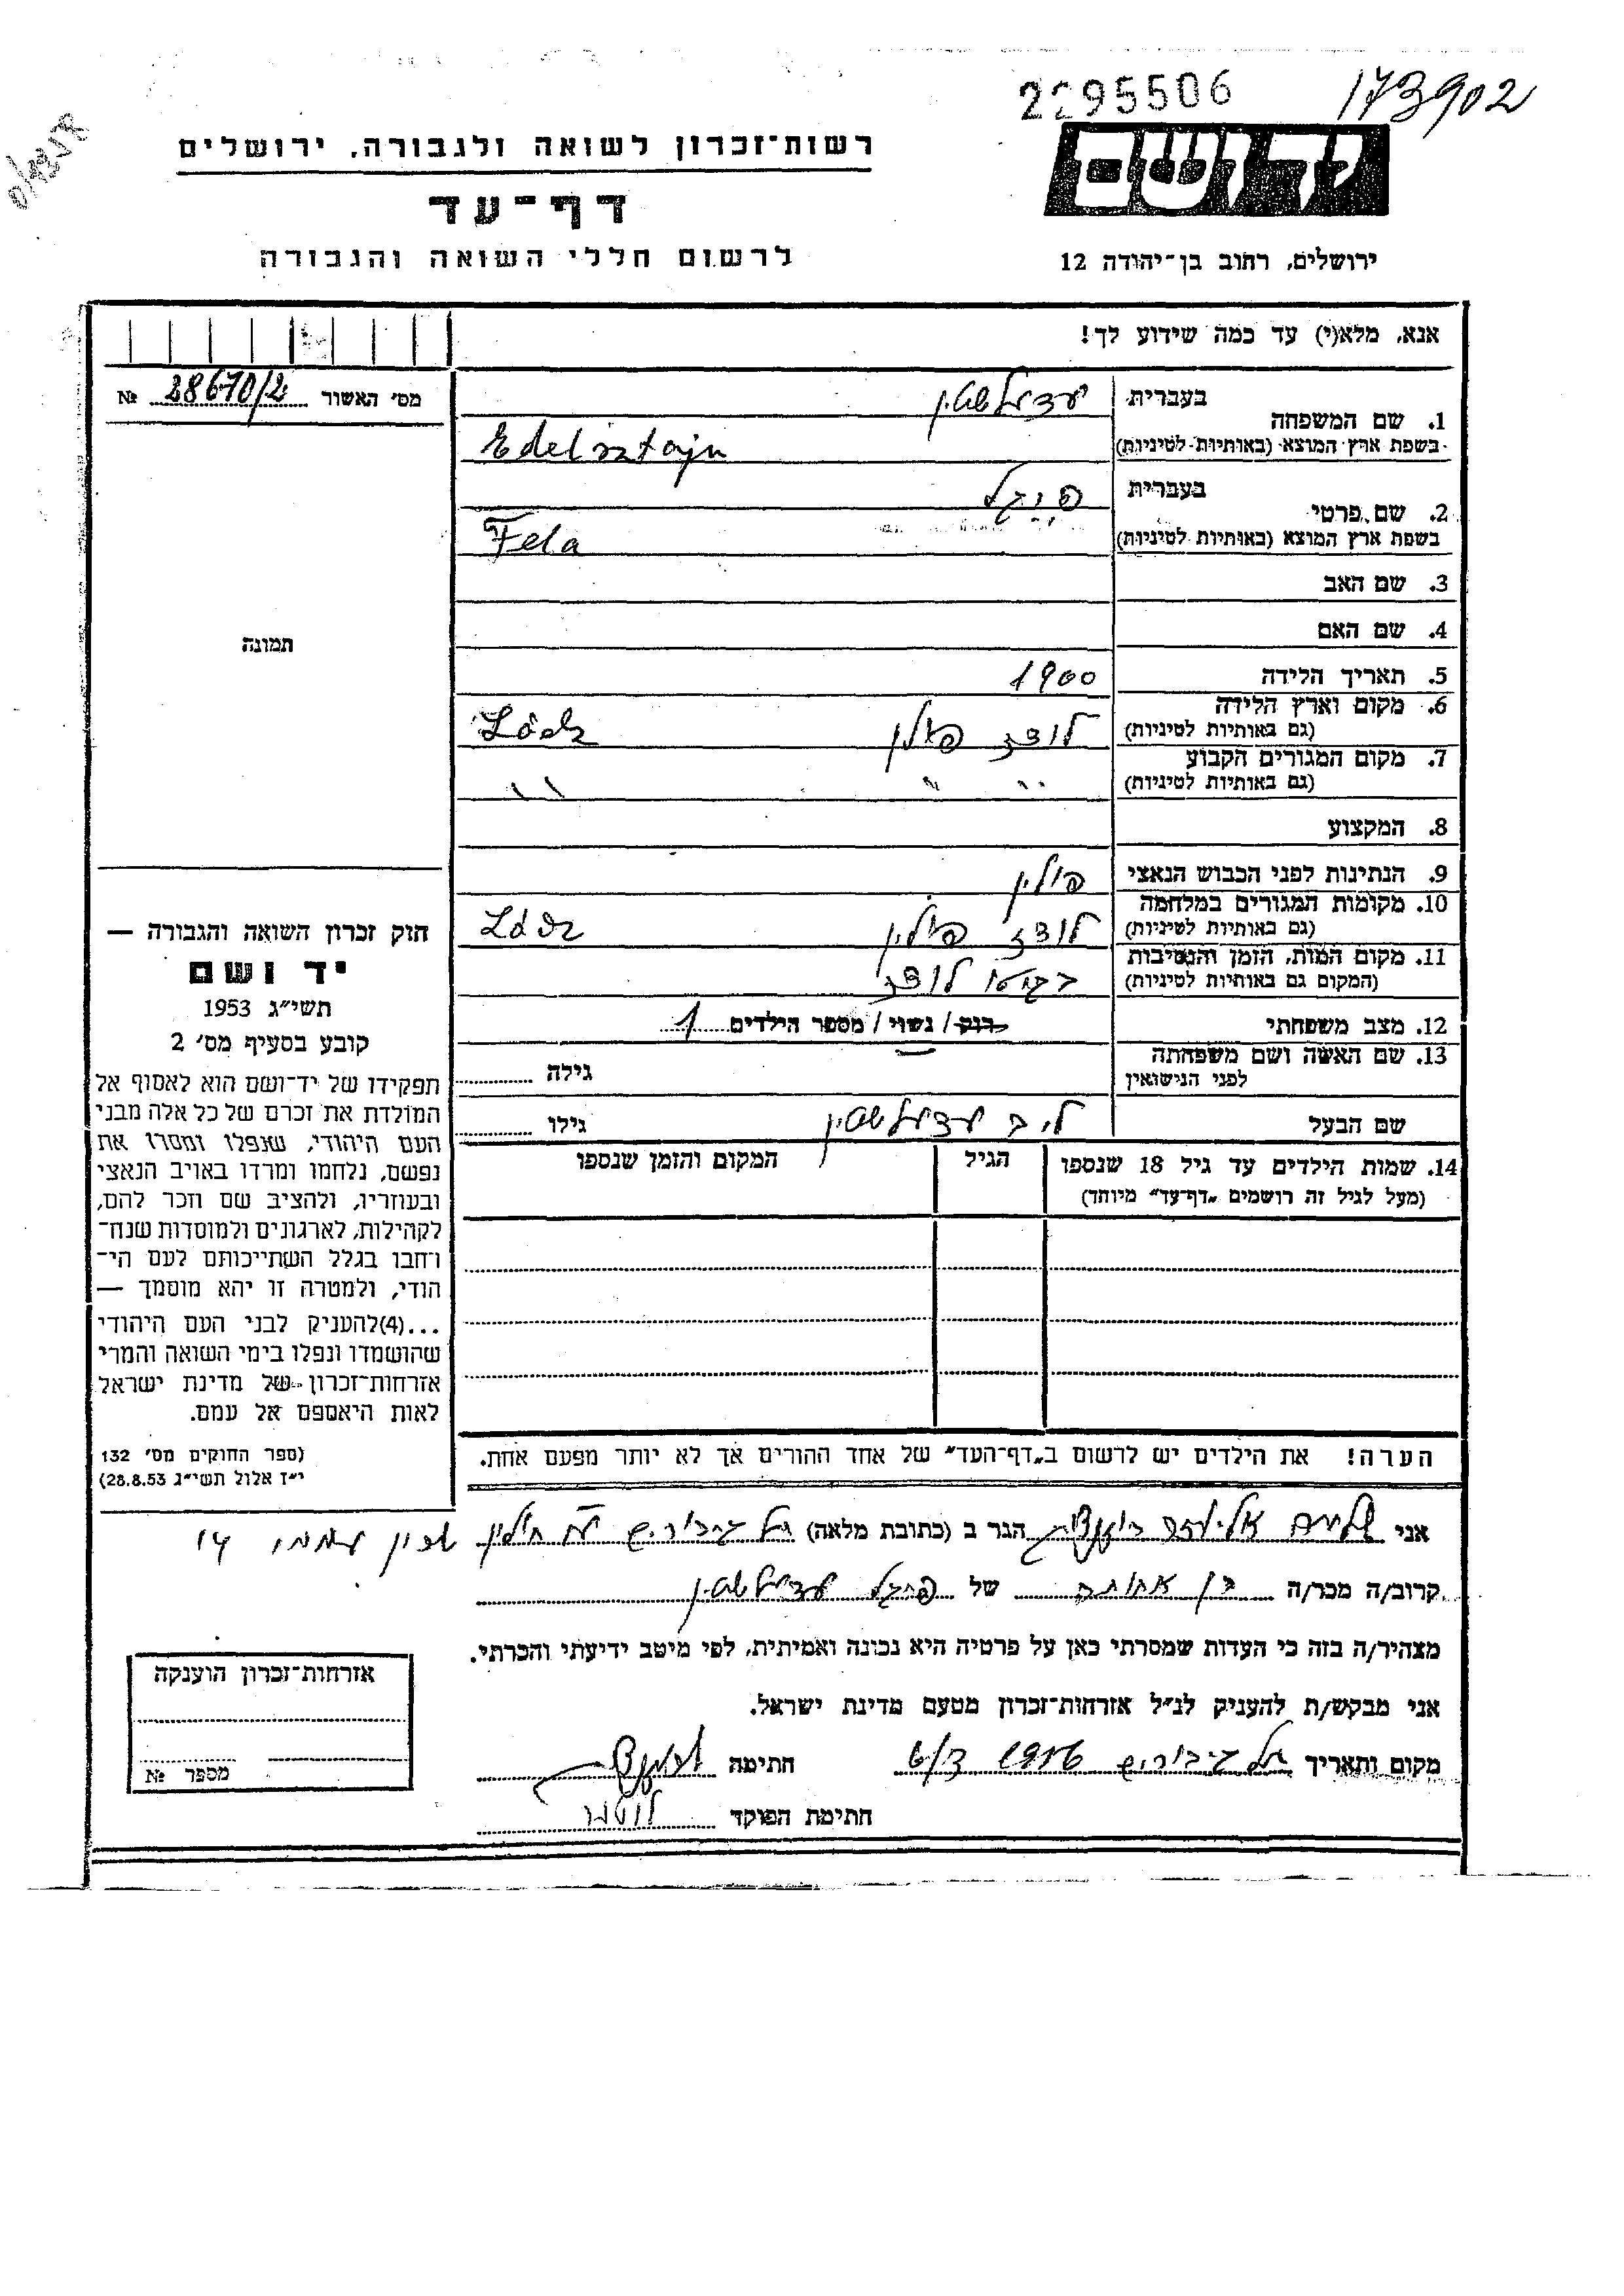 2295506 173902
רשות־זכרון לשואה ולגבורה, ירושלים
יד ושם
דף־עד
לרשום חללי השואה והגבורה
ירושלים, רחוב בן־יהודה 12
אנא, מלא(י) עד כמה שידוע לך!
מס׳ האשור 28670/2 №
1. שם המשפחה
בעברית עדעלשטיין
בשפת ארץ המוצא (באותיות לטיניות) Edelsztajn
2. שם פרטי
בעברית פייגל
בשפת ארץ המוצא (באותיות לטיניות) Fela
3. שם האב
4. שם האם
תמונה
5. תאריך הלידה 1900
6. מקום וארץ הלידה
(גם באותיות לטיניות) לודז פולין Lódz
7. מקום המגורים הקבוע
(גם באותיות לטיניות) " " "
8. המקצוע
9. הנתינות לפני הכבוש הנאצי פולין
10. מקומות המגורים במלחמה
(גם באותיות לטיניות) לודז פולין Lódz
11. מקום המות, הזמן והנסיבות
(המקום גם באותיות לטיניות) בגטו לודז
12. מצב משפחתי רוק / נשוי / מספר הילדים 1
13. שם האשה ושם משפחתה
לפני הנישואין גילה
שם הבעל ליב עדעלשטיין גילו
14. שמות הילדים עד גיל 18 שנספו הגיל המקום והזמן שנספו
(מעל לגיל זה רושמים „דף־עד״ מיוחד)
הערה! את הילדים יש לרשום ב„דף־העד״ של אחד ההורים אך לא יותר מפעם אחת.
חוק זכרון השואה והגבורה —
יד ושם
תשי״ג 1953
קובע בסעיף מס׳ 2
תפקידו של יד־ושם הוא לאסוף אל
המולדת את זכרם של כל אלה מבני
העם היהודי, שנפלו ומסרו את
נפשם, נלחמו ומרדו באויב הנאצי
ובעוזריו, ולהציב שם וזכר להם,
לקהילות, לארגונים ולמוסדות שנח־
רחבו בגלל השתייכותם לעם הי־
הודי, ולמטרה זו יהא מוסמך —
...(4)להעניק לבני העם היהודי
שהושמדו ונפלו בימי השואה והמרי
אזרחות־זכרון של מדינת ישראל
לאות היאספם אל עמם.
(ספר החוקים מס׳ 132
י״ז אלול תשי״ג 28.8.53)
אני אליעזר הגר ב (כתובת מלאה) תל גיבורים חולון שכון עממי 14
קרוב/ה מכר/ה בן אחותה של פייגל עדעלשטיין
מצהיר/ה בזה כי העדות שמסרתי כאן על פרטיה היא נכונה ואמיתית, לפי מיטב ידיעתי והכרתי.
אני מבקש/ת להעניק לנ״ל אזרחות־זכרון מטעם מדינת ישראל.
מקום ותאריך תל גיבורים 1956 חתימה
חתימת הפוקד
אזרחות־זכרון הוענקה
מספר №